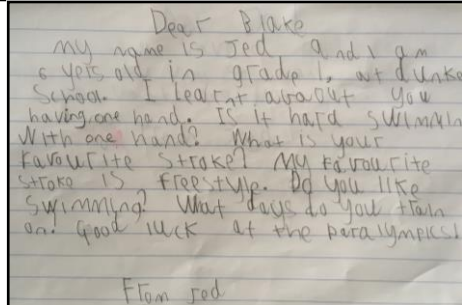 Dear Blake
my name is Jed and I am
6 yers old in grade 1, at dunke
School. I learnt abaout you
having one hand. Is it hard swimmin
With one hand? What is your
Favourite stroke? My favourite
stroke is freestyle. Do you like
swimming? What days do you train
on? Good luck at the paralympics!
From Jed